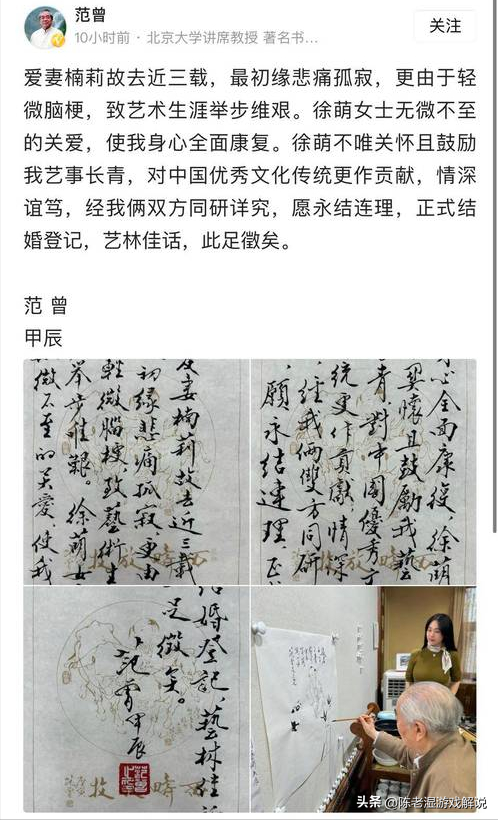 范曾
10小时前 · 北京大学讲席教授 著名书...
关注
爱妻楠莉故去近三载，最初缘悲痛孤寂，更由于轻
微脑梗，致艺术生涯举步维艰。徐萌女士无微不至
的关爱，使我身心全面康复。徐萌不唯关怀且鼓励
我艺事长青，对中国优秀文化传统更作贡献，情深
谊笃，经我俩双方同研详究，愿永结连理，正式结
婚登记，艺林佳话，此足徵矣。
范 曾
甲辰
妻楠莉故去近三載
初缘悲痛孤寂，更由
輕微腦梗，致藝術生
舉步維艱。徐萌女
微不至的关爱，使我
心全面康復，徐萌
懷且鼓勵我藝
青，對中國優秀文
統更作貢獻，情深
經我倆雙方同研
願永結連理，正
結婚登記，藝林佳
足徵矣。
范曾甲辰
头条 @陈老湿游戏解说